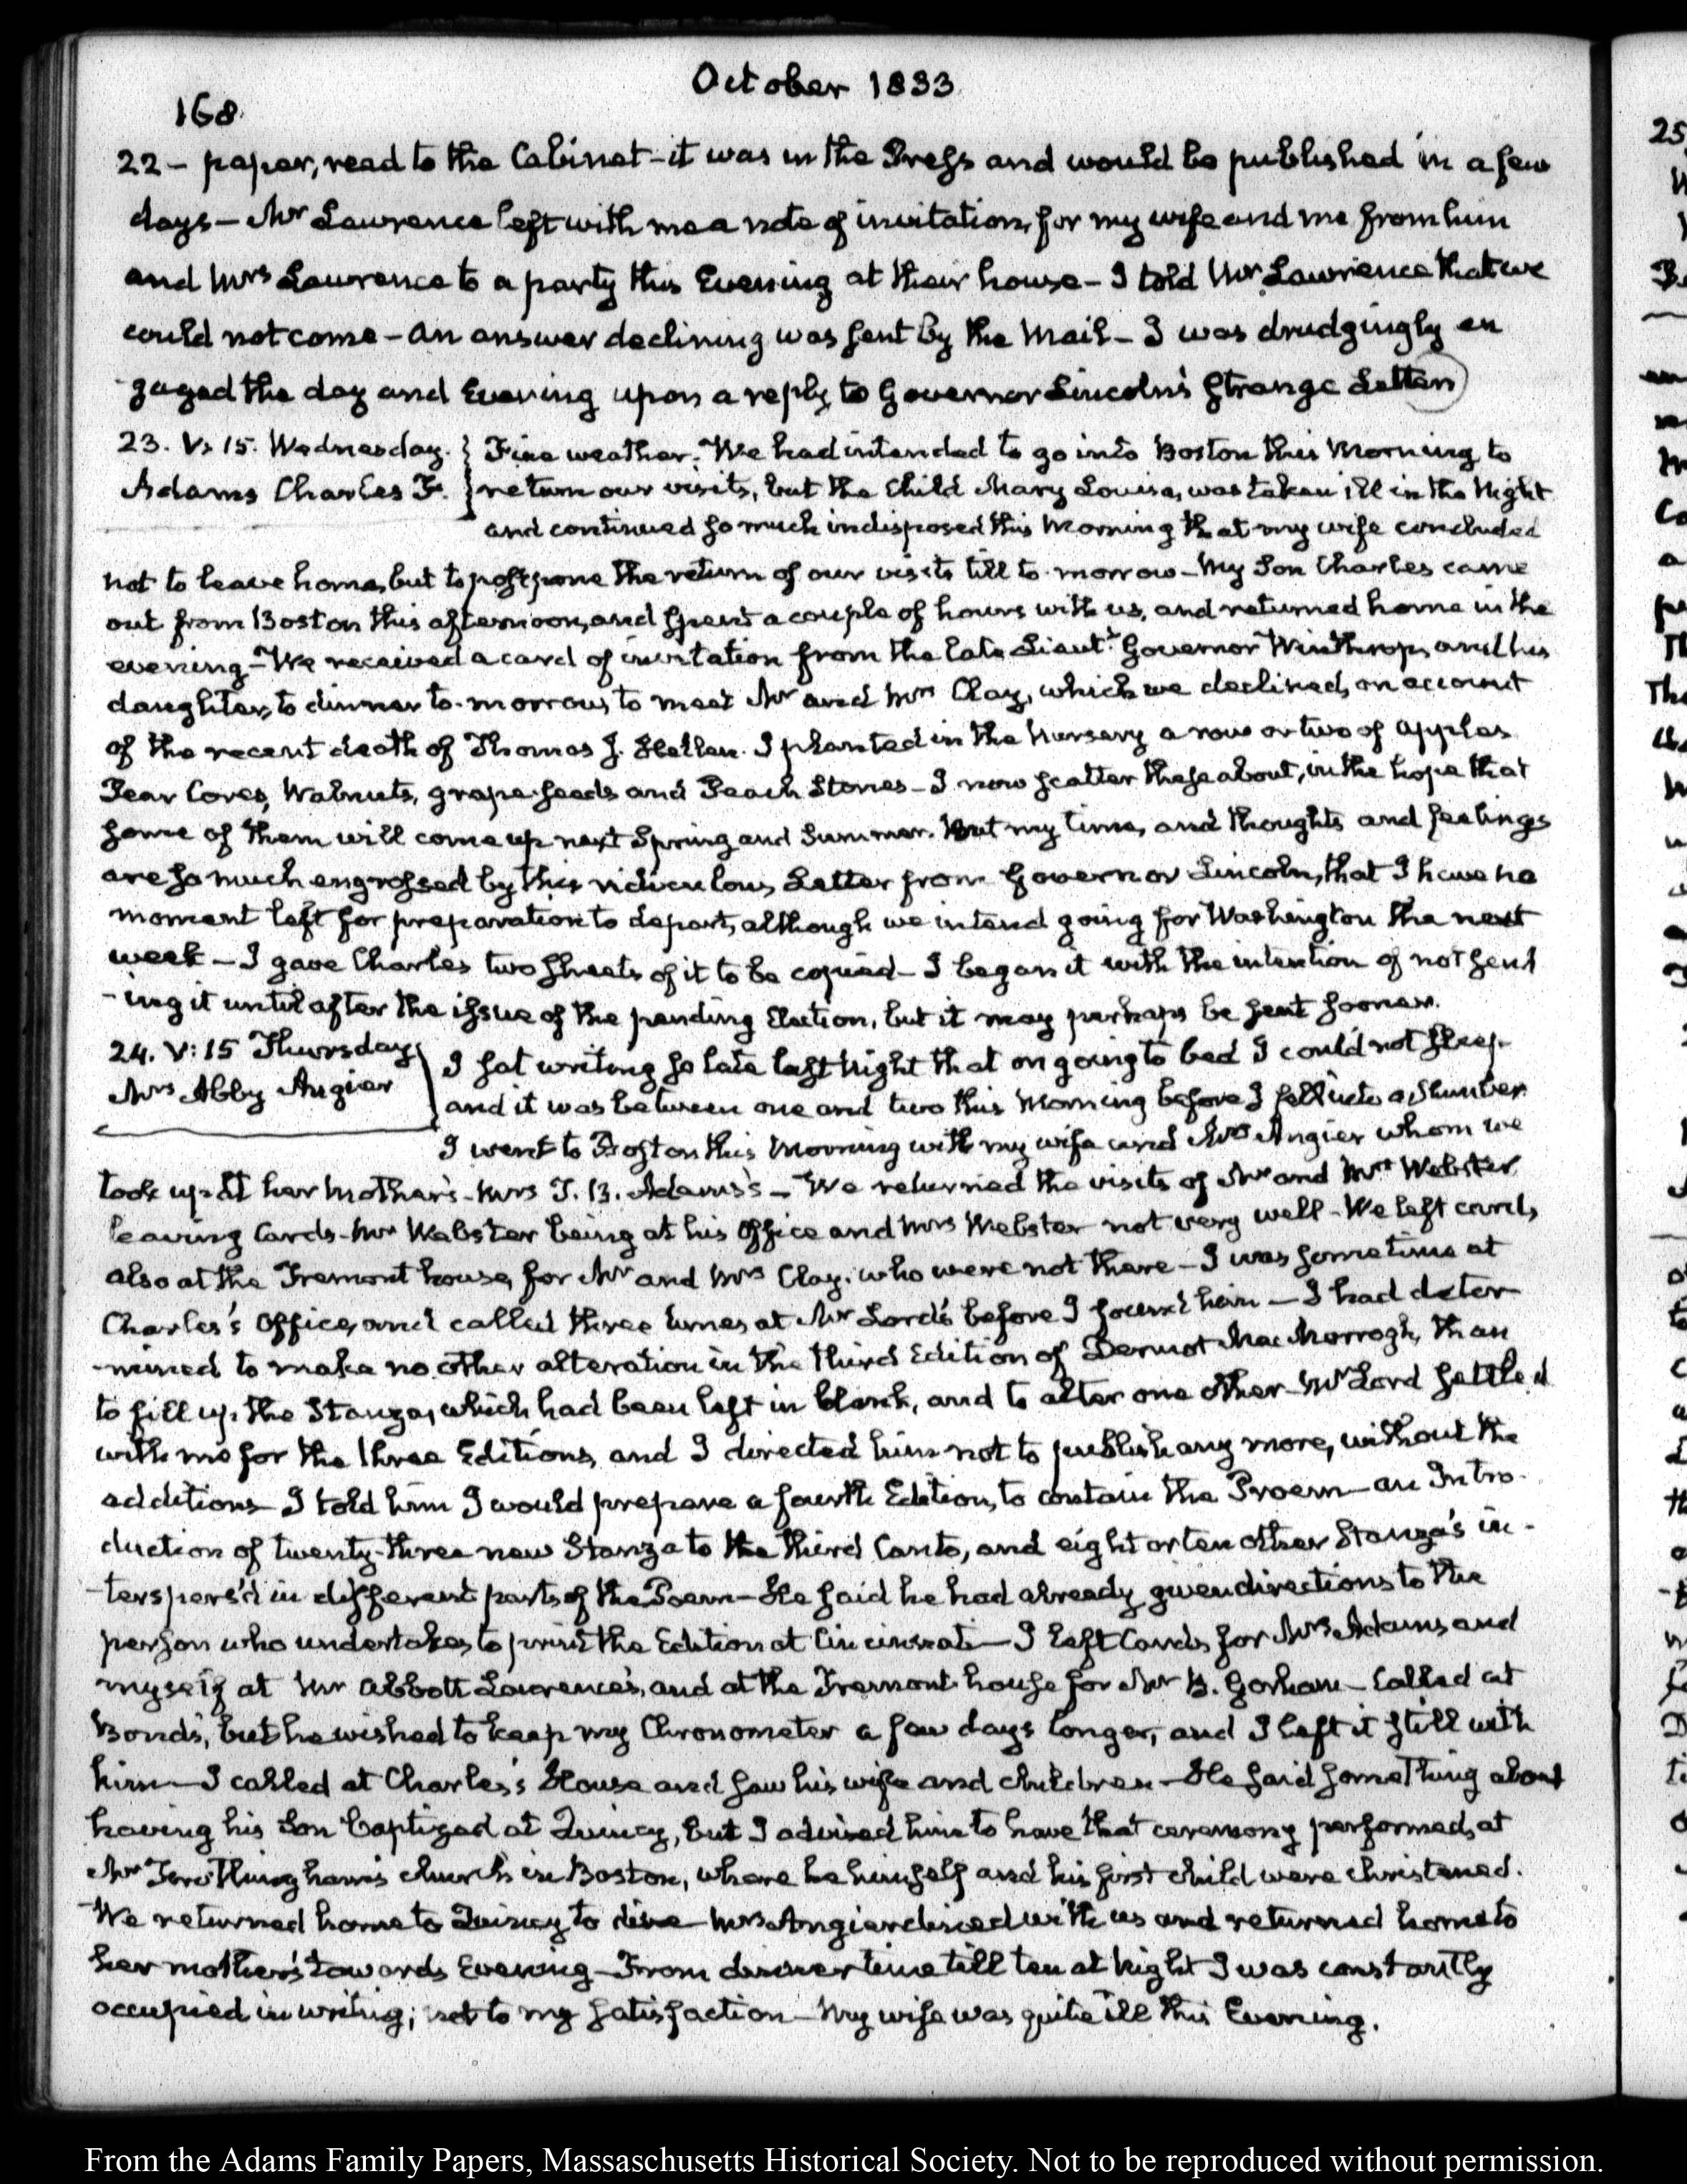 October 1833
168
22 - paper, read to the Cabinet - it was in the Press and would be published in a few
days - Mr Lawrence left with me a note of invitation, for my wife and me from him
and Mrs Lawrence to a party this Evening at their house - I told Mr Lawrence that we
could not come - An answer declining was sent by the Mail - I was drudgingly en
-gaged the day and Evening upon a reply to Governor Lincoln's strange Letter
23. V: 15. Wednesday. Fine weather. We had intended to go into Boston this Morning to
Adams Charles F. return our visits, but the Child Mary Louisa, was taken ill in the Night
and continued so much indisposed this Morning that my wife concluded
not to leave home, but to postpone the return of our visits till to-morrow - My Son Charles came
out from Boston this afternoon, and spent a couple of hours with us, and returned home in the
evening - We received a card of invitation from the late Lieut. Governor Winthrop, and his
daughter, to dinner to-morrow, to meet Mr and Mrs Clay, which we declined, on account
of the recent death of Thomas J. Hellen. I planted in the Nursery a row or two of apples
Pear Cores, Walnuts, grape-seeds and Peach Stones - I now scatter these about, in the hope that
some of them will come up next Spring and Summer. But my time, and thoughts and feelings
are so much engrossed by this ridiculous Letter from Governor Lincoln, that I have no
moment left for preparation to depart, although we intend going for Washington the next
week - I gave Charles two sheets of it to be copied - I began it with the intention of not send
-ing it until after the issue of the pending Election, but it may perhaps be sent sooner.
24. V: 15 Thursday I sat writing so late last Night that on going to bed I could not sleep
Mrs Abby Angier and it was between one and two this Morning before I fell into a slumber
I went to Boston this Morning with my wife and Mrs Angier whom we
took up at her Mother's - Mrs T. B. Adams's - We returned the visits of Mr and Mrs Webster
leaving Cards - Mr Webster being at his Office and Mrs Webster not very well - We left cards,
also at the Tremont house, for Mr and Mrs Clay, who were not there - I was sometime at
Charles's Office, and called three times at Mr Lord's before I found him - I had deter
-mined to make no other alteration in the third Edition of Dermot MacMorrogh, than
to fill up the Stanza, which had been left in blank, and to alter one other - Mr Lord settled
with me for the three Editions, and I directed him not to publish any more, without the
additions - I told him I would prepare a fourth Edition, to contain the Proem - an Intro-
duction of twenty-three new Stanza to the third Canto, and eight or ten other Stanza's in-
-terspers'd in different parts of the Poem - He said he had already given directions to the
person who undertakes to print the Edition at Cincinnati - I left Cards for Mrs Adams and
myself at Mr Abbott Lawrence's, and at the Tremont house for Mr B. Gorham - Called at
Bond's, but he wished to keep my Chronometer a few days longer, and I left it still with
him - I called at Charles's House and saw his wife and children - He said something about
having his Son baptized at Quincy, but I advised him to have that ceremony performed, at
Mr Frothingham's church in Boston, where he himself and his first child were christened.
We returned home to Quincy to dine - Mrs Angier dined with us and returned home to
her mother's towards Evening - From dinner time till ten at Night I was constantly
occupied in writing; not to my satisfaction - My wife was quite ill this Evening.
From the Adams Family Papers, Massachusetts Historical Society. Not to be reproduced without permission.